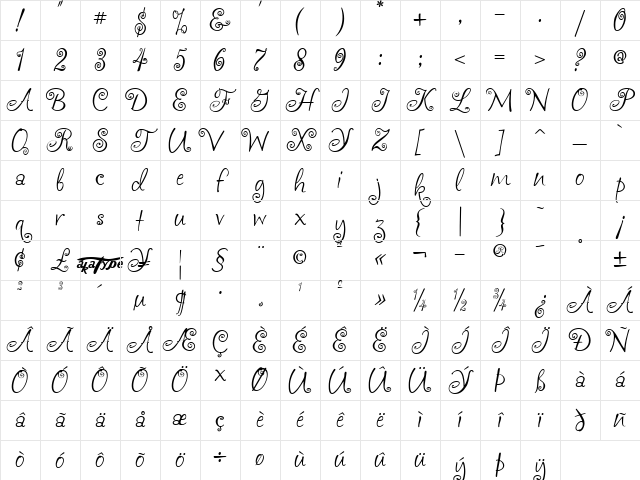 ! " # $ % & ' ( ) * + , – . / 0
1 2 3 4 5 6 7 8 9 : ; < = > ? @
A B C D E F G H I J K L M N O P
Q R S T U V W X Y Z [ \ ] ^ _ `
a b c d e f g h i j k l m n o p
q r s t u v w x y z { | } ~ ¡
¢ £ akaType ¥ ¦ § ¨ © ª « ¬ – ® ¯ ° ±
² ³ ´ µ ¶ · ¸ ¹ º » ¼ ½ ¾ ¿ À Á
Â Ã Ä Å Æ Ç È É Ê Ë Ì Í Î Ï Ð Ñ
Ò Ó Ô Õ Ö × Ø Ù Ú Û Ü Ý Þ ß à á
â ã ä å æ ç è é ê ë ì í î ï ð ñ
ò ó ô õ ö ÷ ø ù ú û ü ý þ ÿ